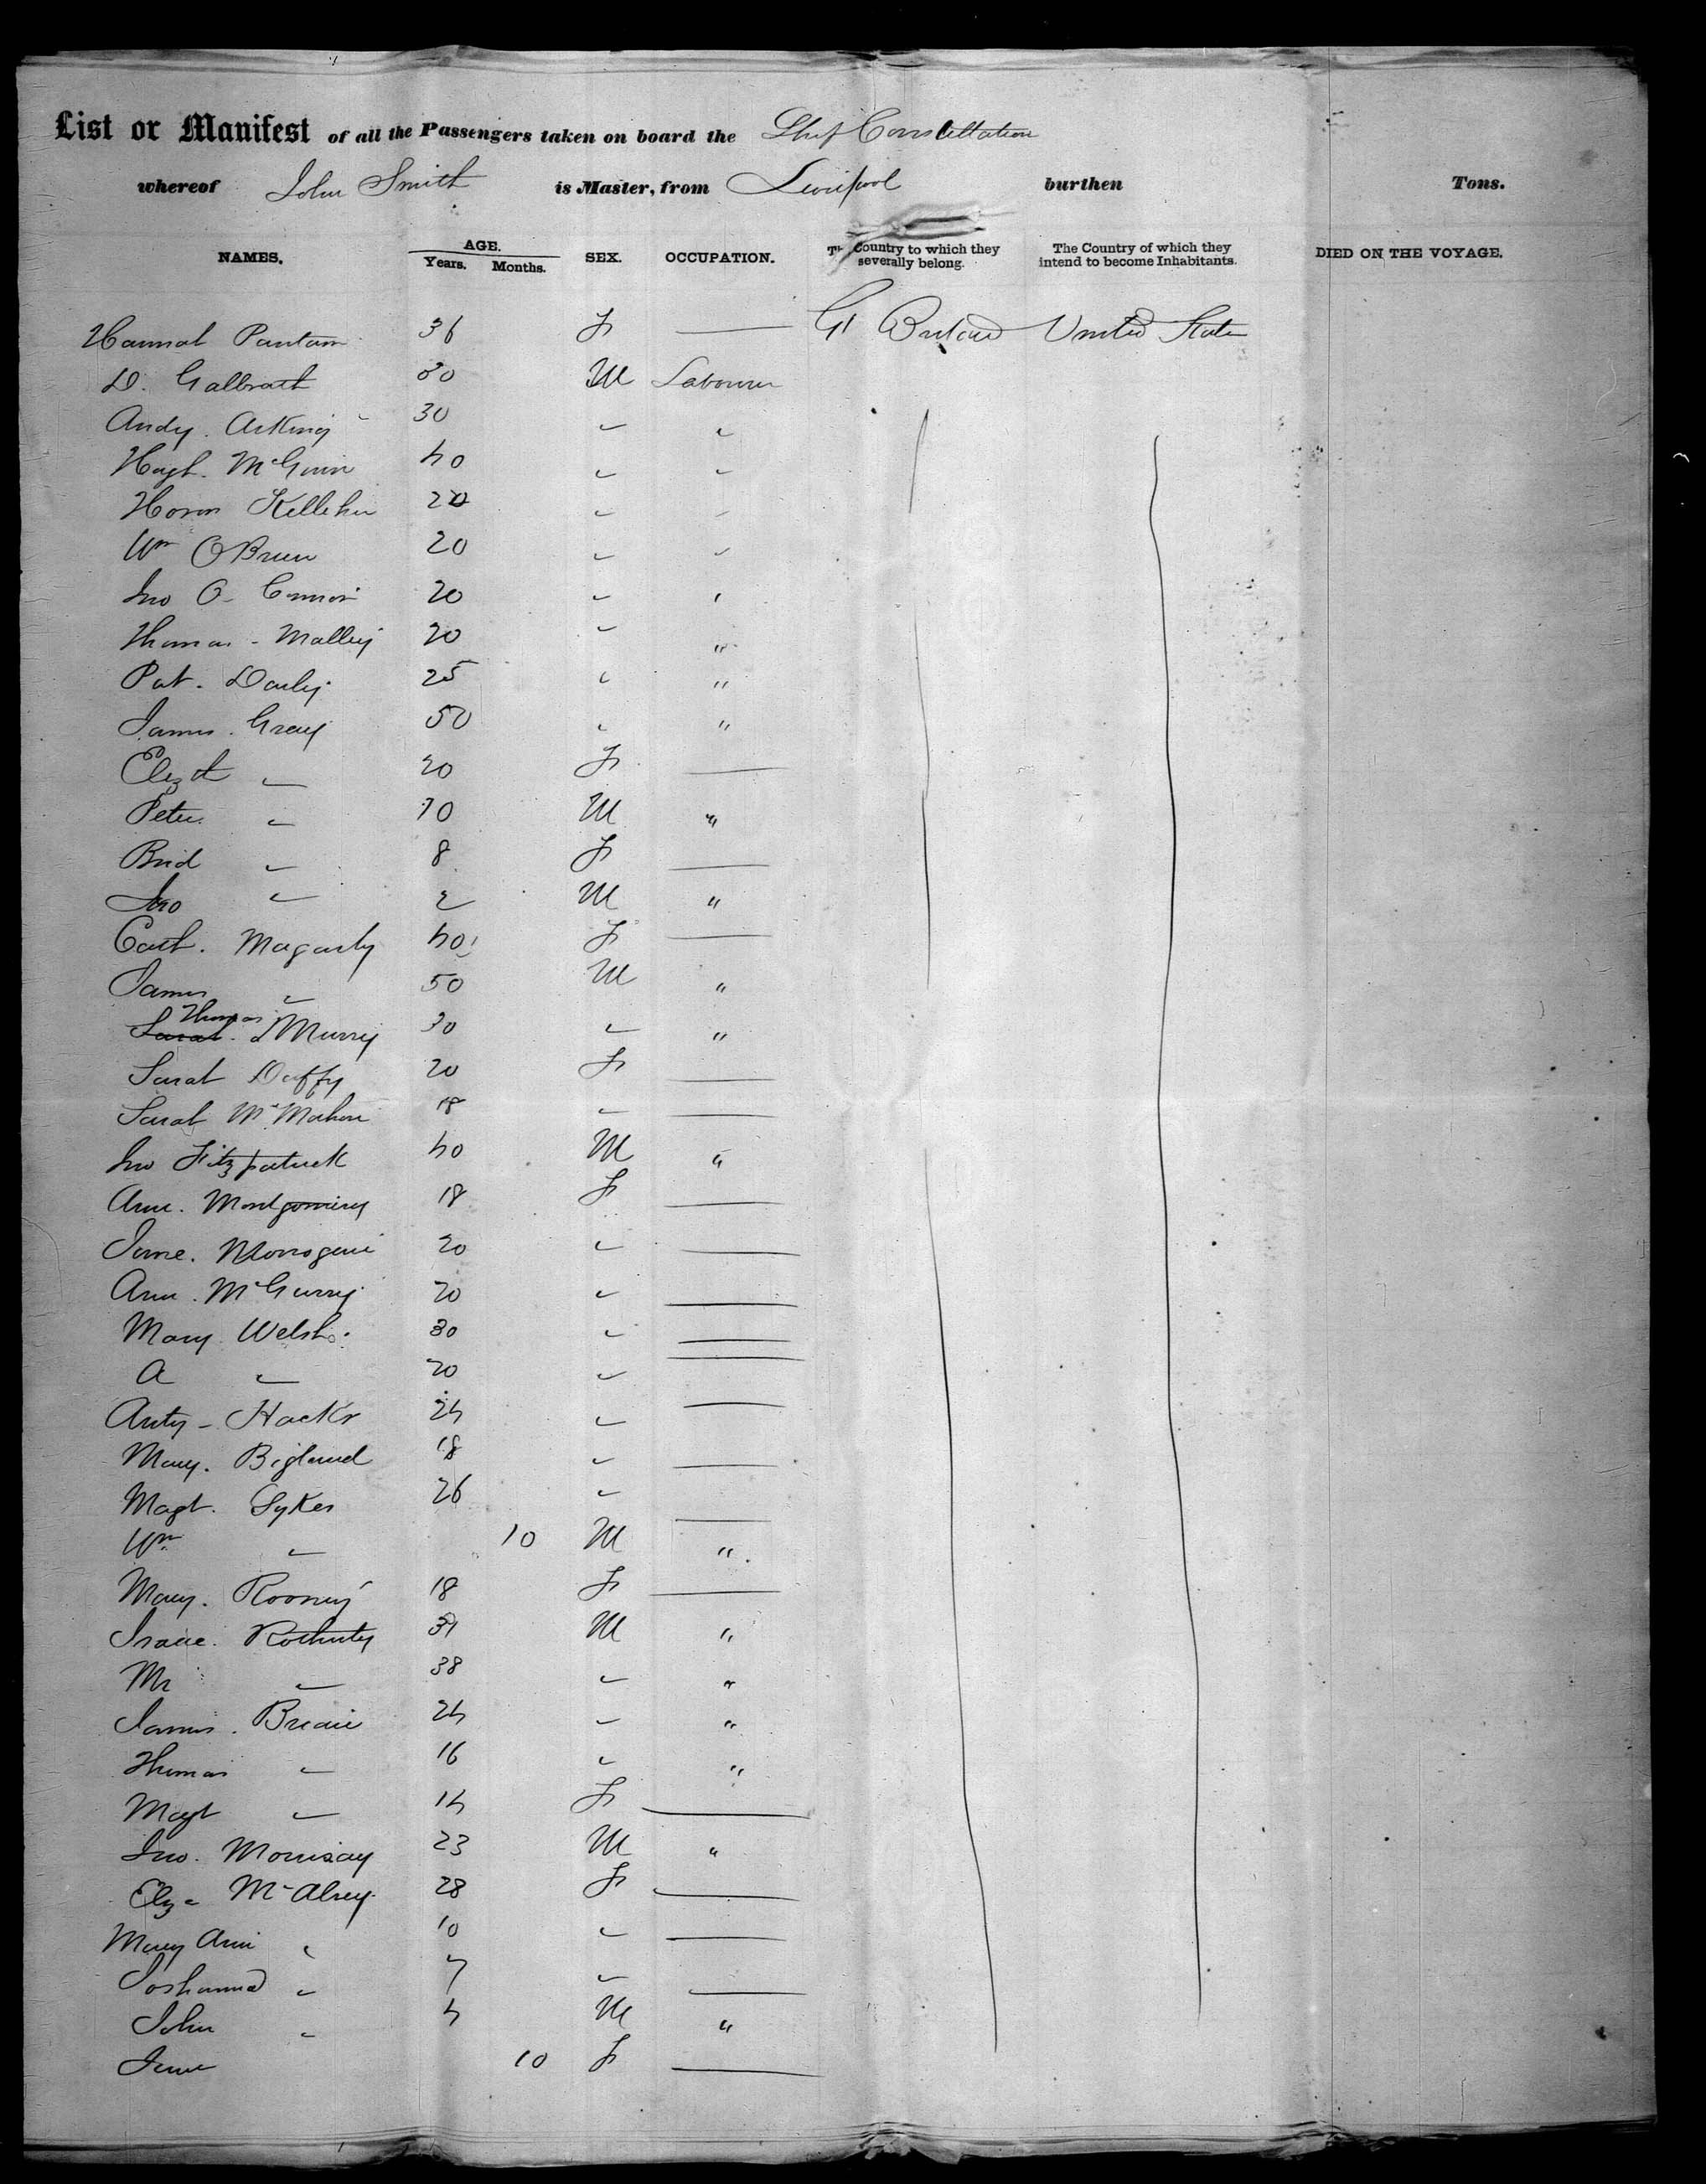 List or Manifest of all the Passengers taken on board the Ship Constellation
whereof John Smith is Master, from Liverpool burthen Tons.
NAMES. AGE. SEX. OCCUPATION. The Country to which they The Country of which they DIED ON THE VOYAGE.
Years. Months. severally belong. intend to become Inhabitants.
Hannah Pantam 36 F — Gt Britain United States
D. Galbrath 30 M Labourer
Andy. 30 " "
Hugh. McGinn 40 " "
Kelleher 20 " "
Wm OBrien 20 " "
Jno O Connor 20 " "
Thomas - Malley 20 " "
Pat. Darly 25 " "
James. Gray 50 " "
Elizth " 20 F —
Peter " 10 M "
Brid " 8 F —
Jno " 2 M "
Cath. Magarty 40 F —
James " 50 M "
Thomas
Sarah. Murry 30 " "
Sarah Duffy 20 F —
Sarah McMahon 18 " —
Jno Fitzpatrick 40 M "
Ann. Montgomery 18 F —
Jane. 20 " —
Ann. McGurry 20 " —
Mary Welsh. 30 " —
A " 20 " —
Anty - Hackr 24 " —
Mary. Bigland 18 " —
Magt. Sykes 26 " —
Wm " 10 M "
Mary. Rooney 18 F —
Isaac. M "
" 38 " "
James. 24 " "
Thomas " 16 " "
Magt " 14 F —
Jno. Morrisay 23 M "
Elza McAlrey 28 F —
Mary Ann " 10 " —
Joshanna " 7 " —
John " 4 M "
Jane 10 F —